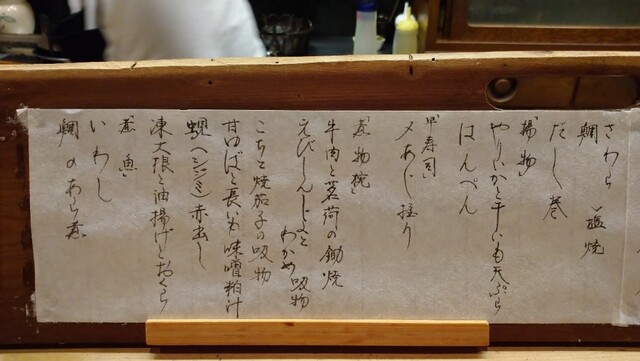 さわら
鯛 〉塩焼
だし巻
揚物
やりいかと干しいも天ぷら
はんぺん
寿司
〆あじ握り
煮物椀
牛肉と茗荷の鋤焼
えびしんじょと
わかめ吸物
こちと焼茄子の吸物
甘ゆばと長いも味噌粕汁
蜆(シジミ)赤出し
凍大根と油揚げとおくら
煮魚
いわし
鯛のあら煮